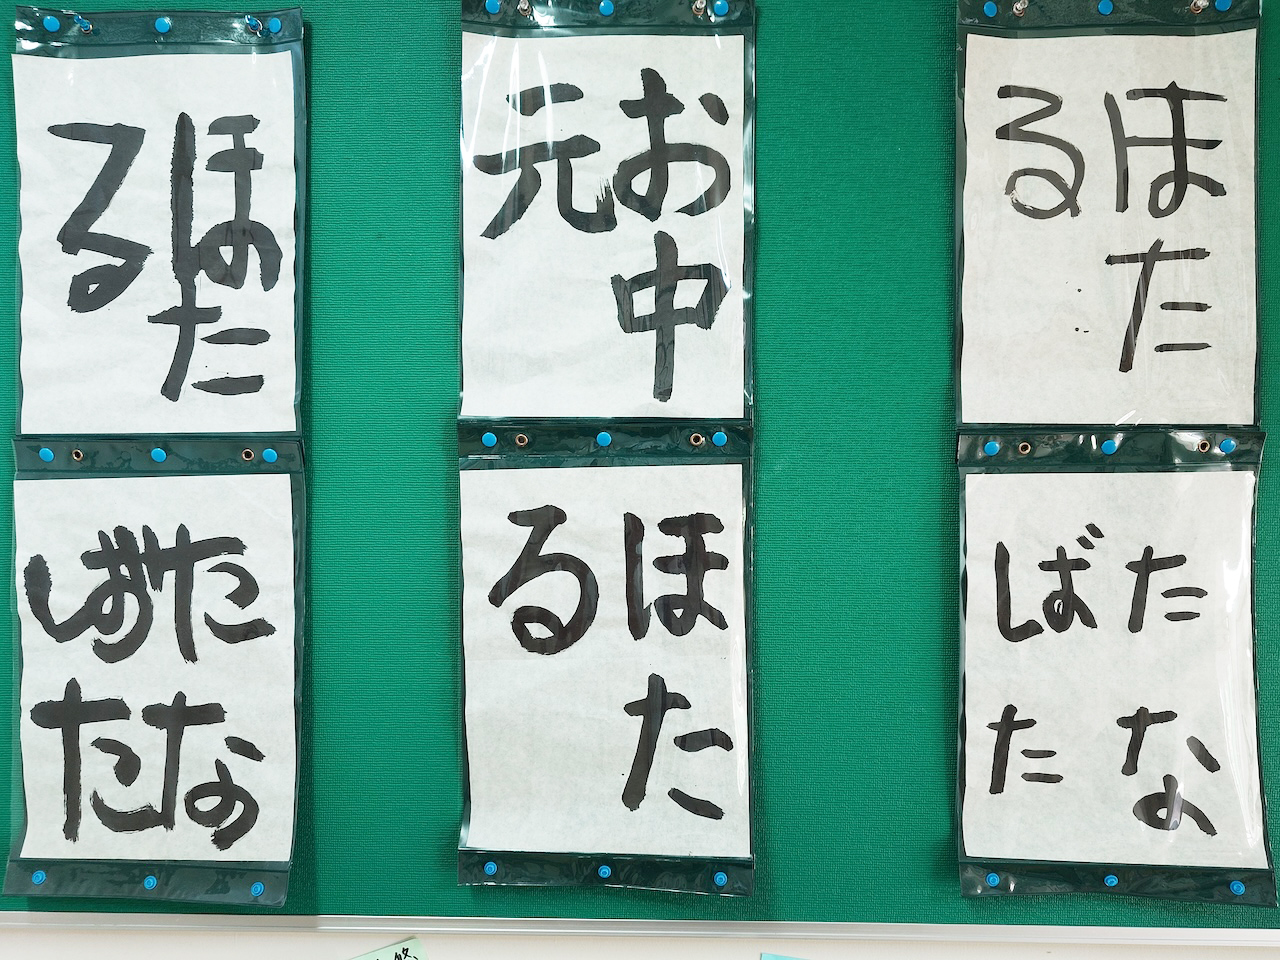 ほた
る
お中
元
ほた
る
たな
ばた
ほた
る
たな
ばた